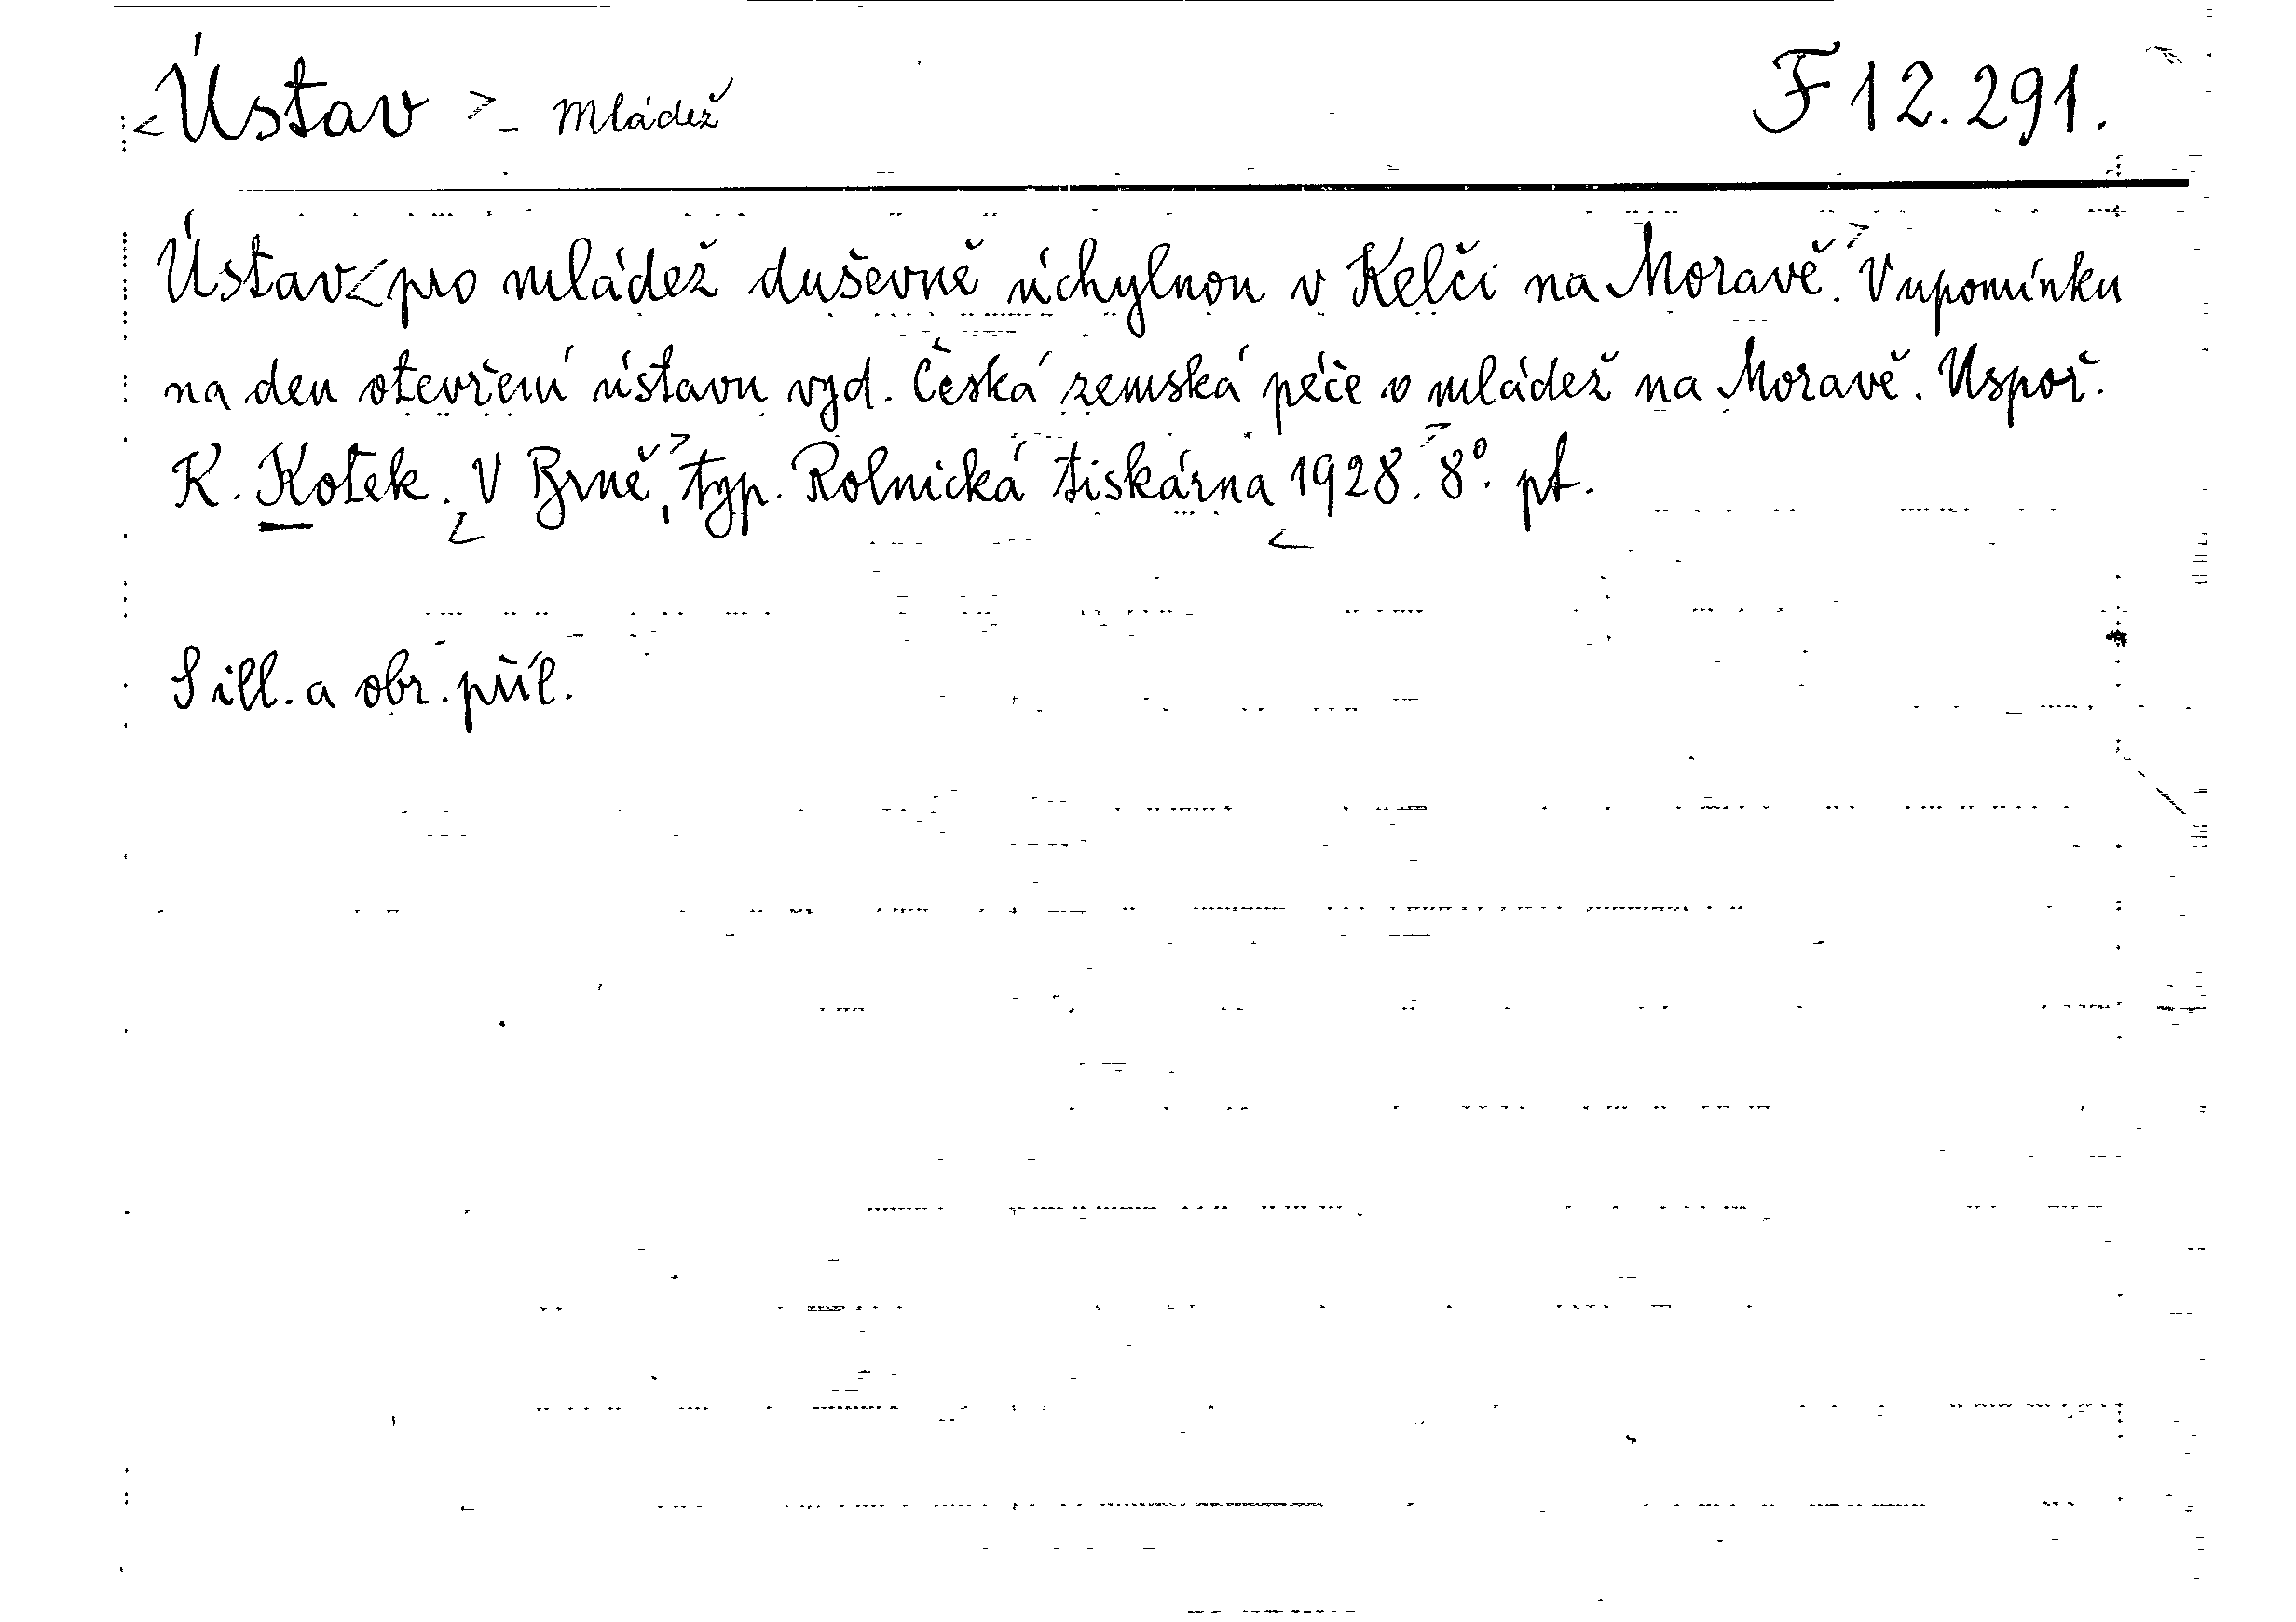 <Ústav> - mládež F 12.291.
Ústav<pro mládež duševně úchylnou v Kelči na Moravě.> V upomínku
na den otevření ústavu vyd. Česká zemská péče o mládež na Moravě. Uspoř.
K. Kotek. <V Brně,> typ. Rolnická tiskárna <1928.> 8°. pt.
S ill. a obr. příl.